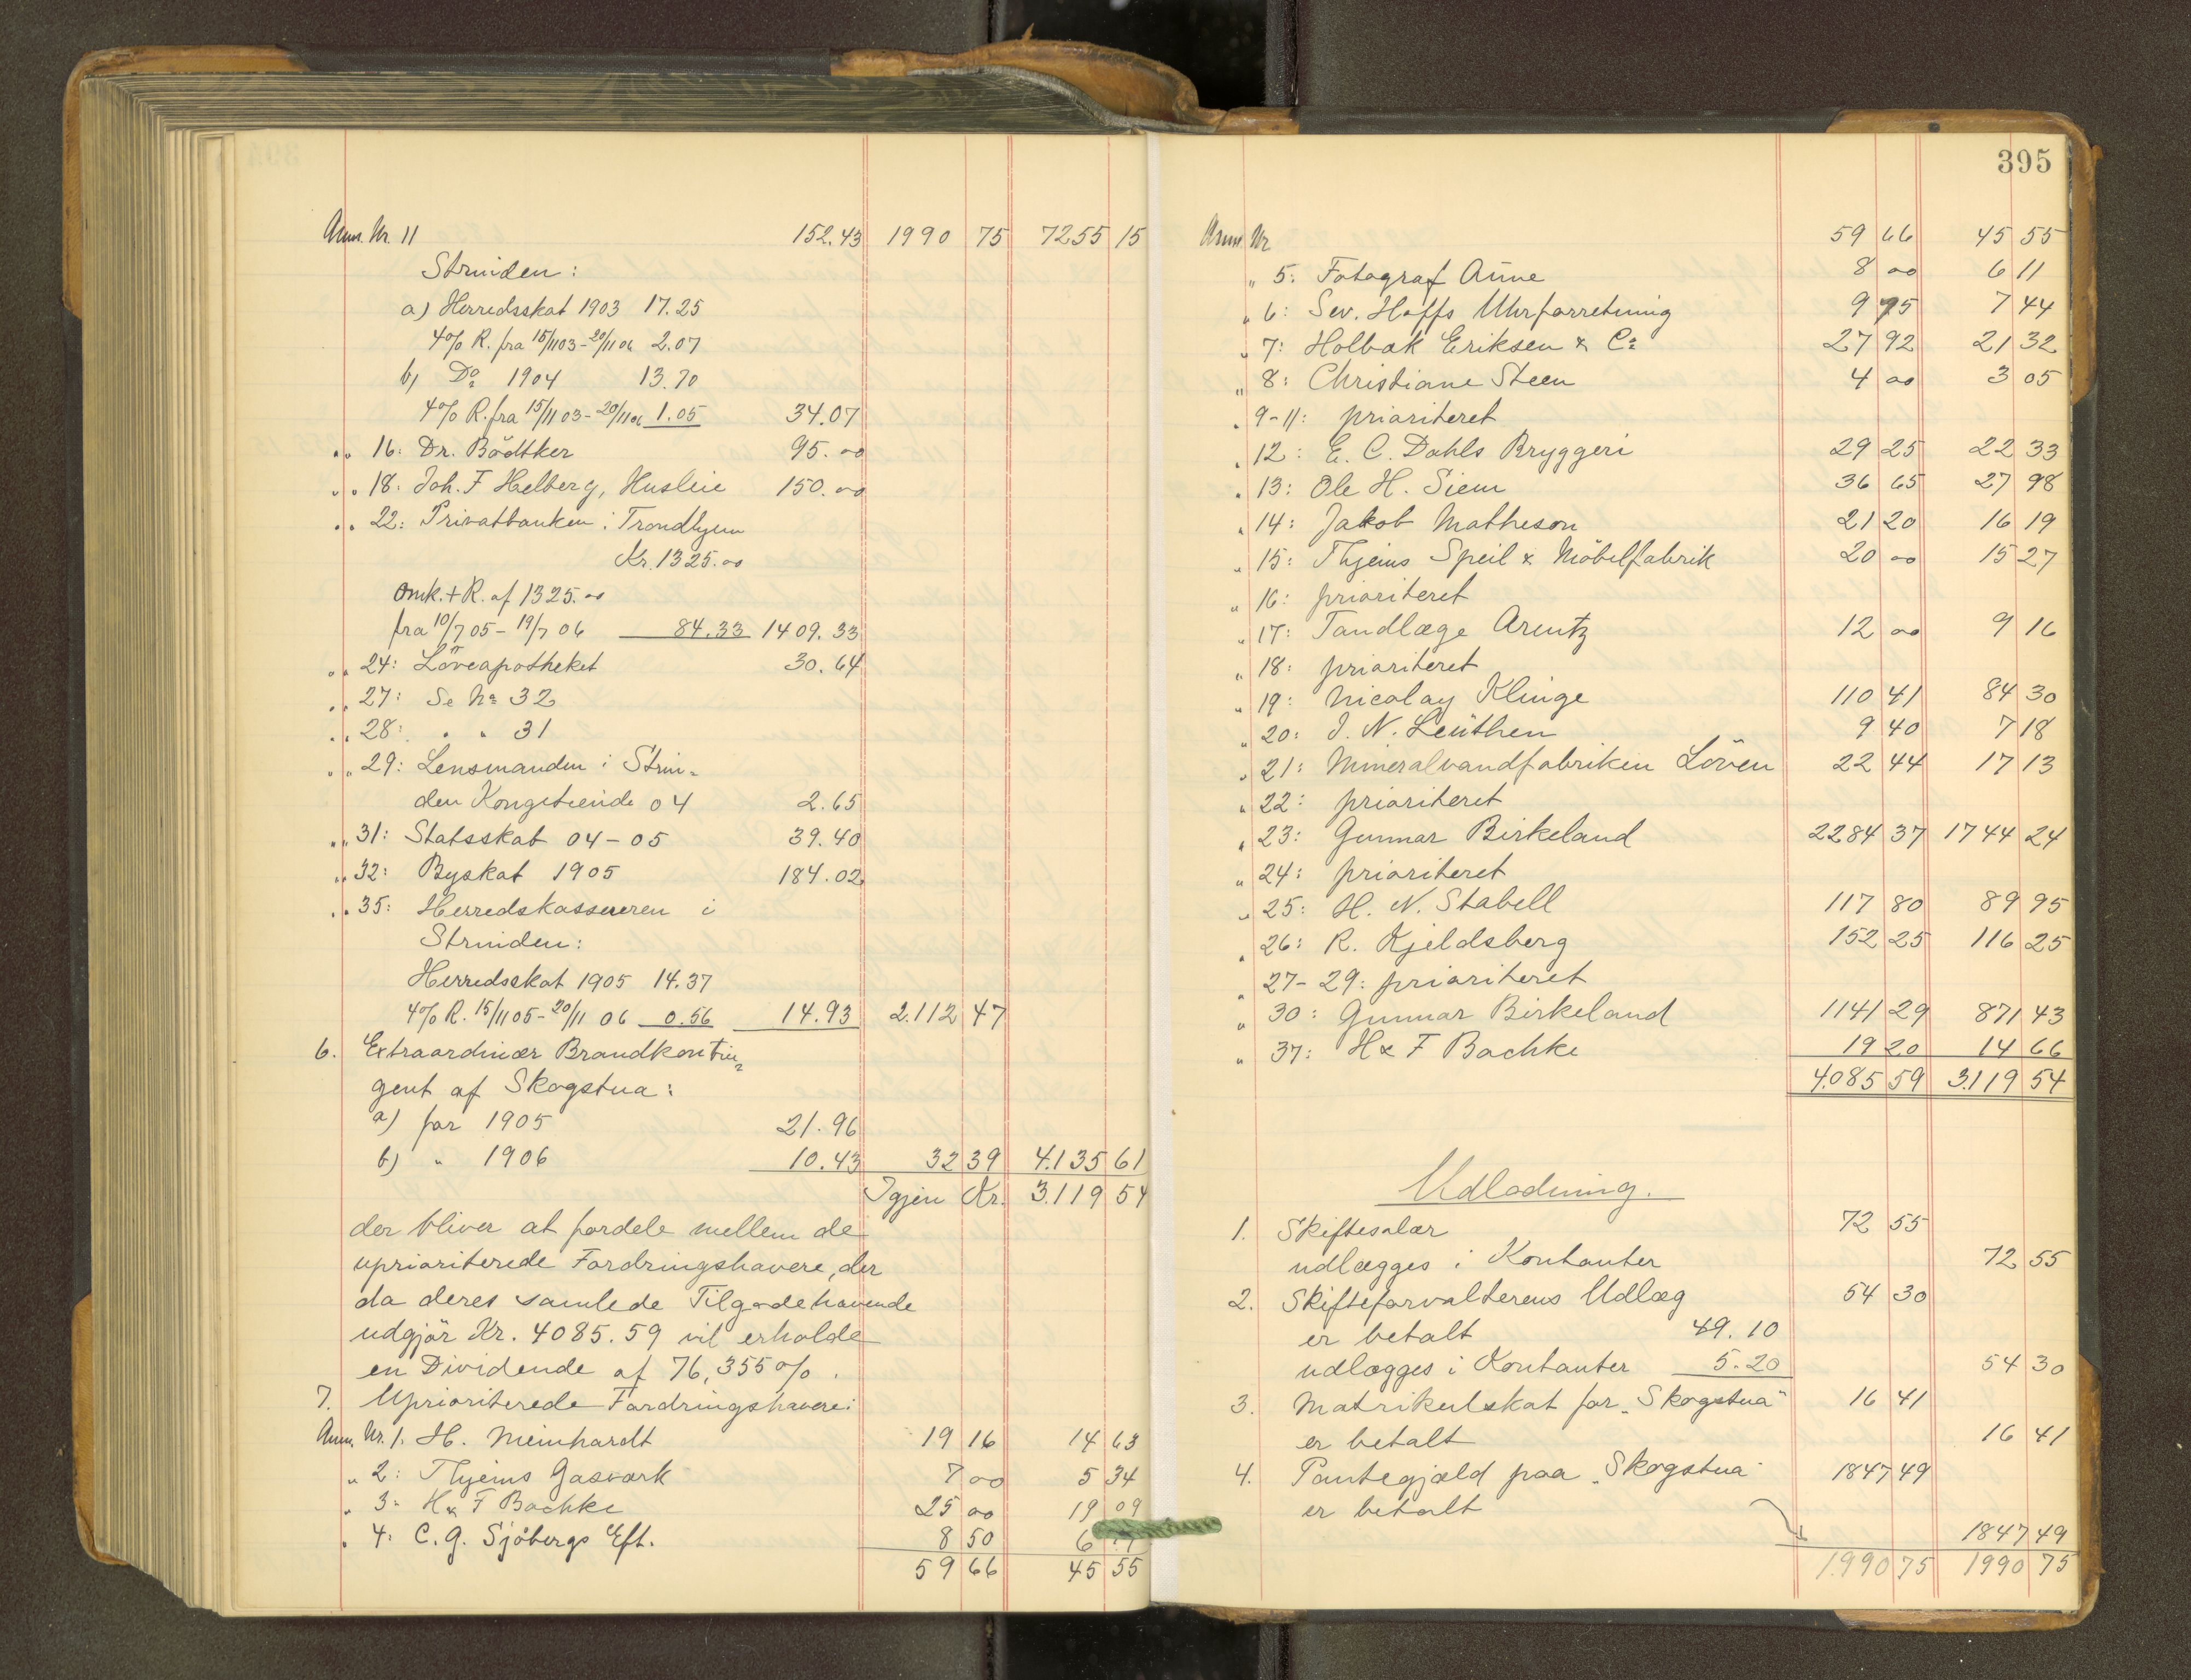 Anm. Nr. 11 152.43 1990 75 7255 15
Strinden:
a) Herredsskat 1903 17.25
4% R. fra 15/11 03 - 20/11 06 2.07
b) Do 1904 13.70
4% R. fra 15/11 03 - 20/11 06 1.05 34.07
" " 16: Dr. Bödtker 95.00
" " 18. Joh. F Helberg, Husleie 150.00
" " 22: Privatbanken i Trondhjem
Kr. 1325.00
Omk. + R. af 1325.00
fra 10/7 05 - 19/7 06 84.33 1409.33
" " 24: Löveapotheket 30.64
" " 27: Se No 32
" " 28: " " 31
" " 29: Lensmanden i Strin-
den Kongetiende 04 2.65
" " 31: Statsskat 04-05 39.40
" " 32: Byskat 1905 184.02
" " 35: Herredskassereren i
Strinden:
Herredsskat 1905 14.37
4% R. 15/11 05 - 20/11 06 0.56 14.93 2.112 47
6. Extraordinær Brandkontin-
gent af Skogstua:
a) for 1905 21.96
b) " 1906 10.43 32 39 4.135 61
Igjen Kr. 3.119 54
der bliver at fordele mellem de
uprioriterede Fordringshavere, der
da deres samlede Tilgodehavende
udgjör Kr. 4085.59 vil erholde
en Dividende af 76,355%.
7. Uprioriterede Fordringshavere:
Anm. Nr. 1. H. Meinhardt 19 16 14 63
" 2: Thjems Gasværk 7 00 5 34
" 3: H & F Bachke 25 00 19 09
" 4: C. G. Sjöbergs Eft. 8 50 6
59 66 45 55
395
Anm. Nr 59 66 45 55
" 5: Fotograf Aune 8 00 6 11
" 6: Sev. Hoffs Uhrforretning 9 75 7 44
" 7: Holbæk Eriksen & Co 27 92 21 32
" 8: Christiane Steen 4 00 3 05
" 9-11: prioriteret
" 12: E. C. Dahls Bryggeri 29 25 22 33
" 13: Ole H. Siem 36 65 27 98
" 14: Jakob Matheson 21 20 16 19
" 15: Thjems Speil & Möbelfabrik 20 00 15 27
" 16: prioriteret
" 17: Tandlæge Arentz 12 00 9 16
" 18: prioriteret
" 19: Nicolay Klinge 110 41 84 30
" 20: I. N. Leuthen 9 40 7 18
" 21: Mineralvandfabriken Löven 22 44 17 13
" 22: prioriteret
" 23: Gunnar Birkeland 2284 37 1744 24
" 24: prioriteret
" 25: H. N. Stabell 117 80 89 95
" 26: R. Kjeldsberg 152 25 116 25
" 27-29: prioriteret
" 30: Gunnar Birkeland 1141 29 871 43
" 37: H & F Bachke 19 20 14 66
4.085 59 3.119 54
Udlodning.
1. Skiftesalær 72 55
udlægges i Kontanter 72 55
2. Skifteforvalterens Udlæg 54 30
er betalt 49.10
udlægges i Kontanter 5.20 54 30
3. Matrikulskat for "Skogstua" 16 41
er betalt 16 41
4. Pantegjæld paa "Skogstua" 1847 49
er betalt
1847 49
1.990 75 1990 75